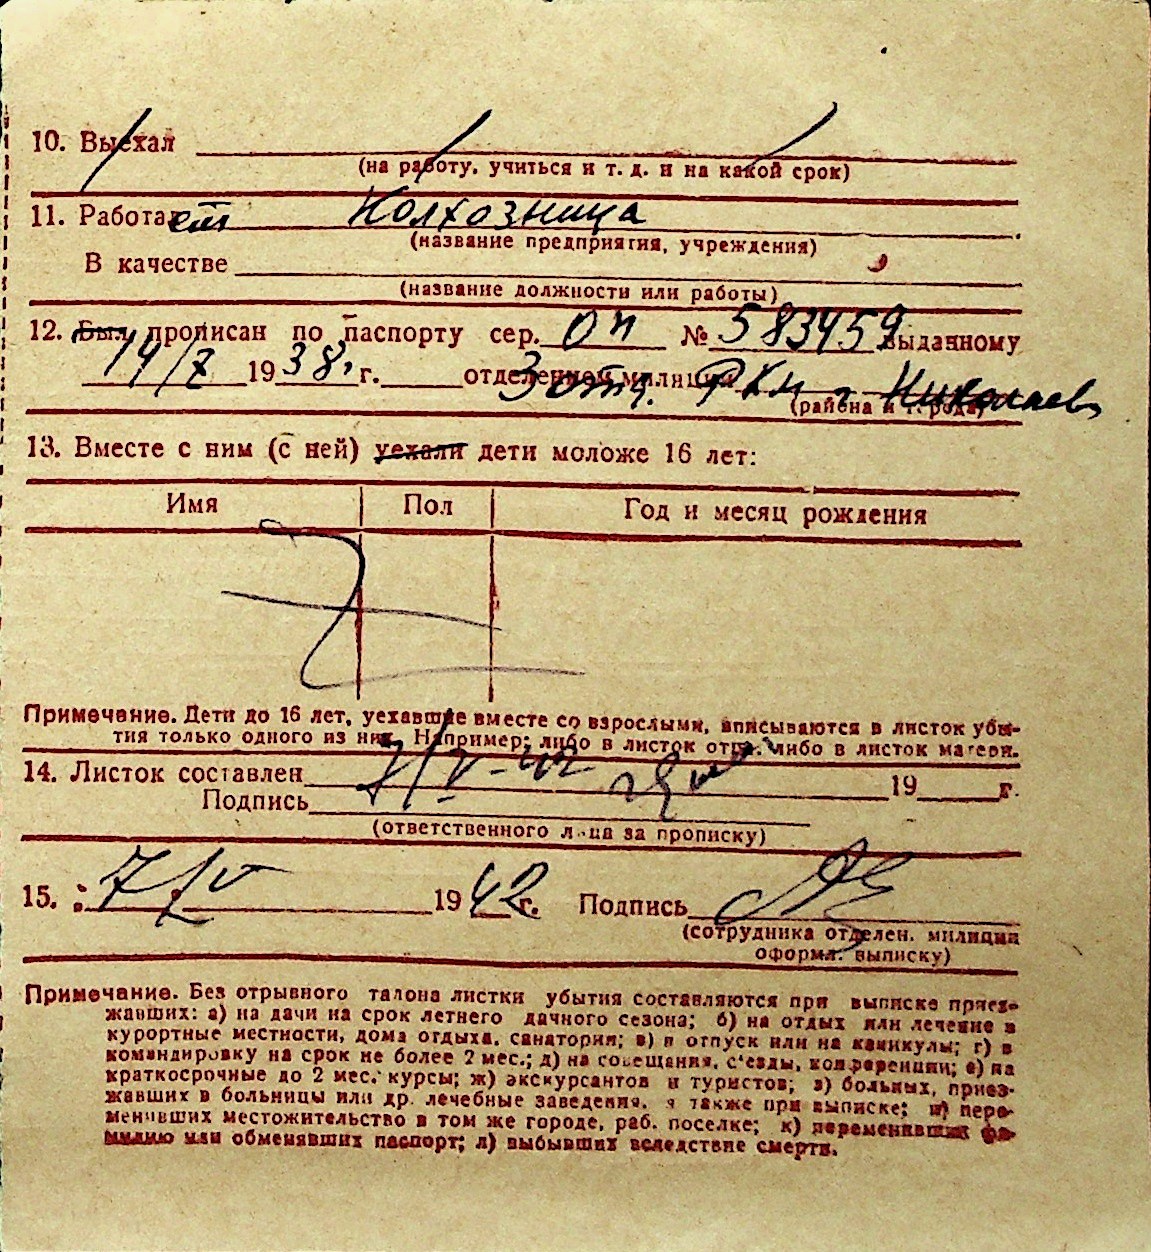 10. Выехал
(на работу, учиться и т. д. и на какой срок)
11. Работает Колхозница
(название предприятия, учреждения)
В качестве
(название должности или работы)
12. Был прописан по паспорту сер. ОП № 583459 выданному
14/7 1938 г. отделением милиции 3 отд. РКМ г Николаев
(района и города)
13. Вместе с ним (с ней) уехали дети моложе 16 лет:
Имя Пол Год и месяц рождения
Примечание. Дети до 16 лет, уехавшие вместе со взрослыми, вписываются в листок убы-
тия только одного из них. Например: либо в листок отца, либо в листок матери.
14. Листок составлен 7/V-42 19 г.
Подпись
(ответственного лица за прописку)
15. 7/V 1942 г. Подпись
(сотрудника отделен. милиции
оформл. выписку)
Примечание. Без отрывного талона листки убытия составляются при выписке приез-
жавших: а) на дачи на срок летнего дачного сезона; б) на отдых или лечение в
курортные местности, дома отдыха, санатории; в) в отпуск или на каникулы; г) в
командировку на срок не более 2 мес.; д) на совещания, с'езды, конференции; е) на
краткосрочные до 2 мес. курсы; ж) экскурсантов и туристов; з) больных, приез-
жавших в больницы или др. лечебные заведения, а также при выписке; и) пере-
менивших местожительство в том же городе, раб. поселке; к) переменивших фа-
милию или обменявших паспорт; л) выбывших вследствие смерти.